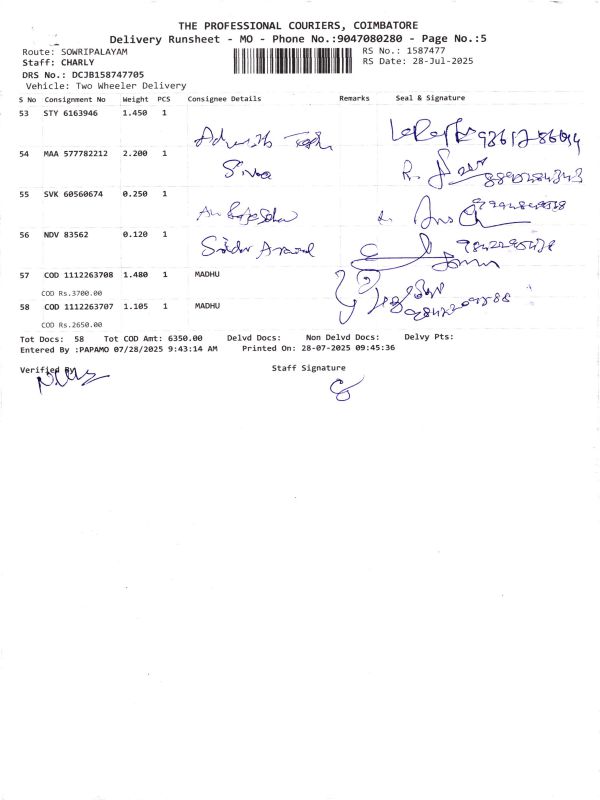 THE PROFESSIONAL COURIERS, COIMBATORE
Delivery Runsheet - MO - Phone No.:9047080280 - Page No.:5
Route: SOWRIPALAYAM
RS No.: 1587477
Staff: CHARLY
RS Date: 28-Jul-2025
DRS No.: DCJB158747705
Vehicle: Two Wheeler Delivery
S No Consignment No Weight PCS Consignee Details Remarks Seal & Signature
53 STY 6163946 1.450 1
54 MAA 577782212 2.200 1
Siva
55 SVK 60560674 0.250 1
56 NDV 83562 0.120 1
57 COD 1112263708 1.480 1 MADHU
COD Rs.3700.00
58 COD 1112263707 1.105 1 MADHU
COD Rs.2650.00
Tot Docs: 58 Tot COD Amt: 6350.00 Delvd Docs: Non Delvd Docs: Delvy Pts:
Entered By :PAPAMO 07/28/2025 9:43:14 AM Printed On: 28-07-2025 09:45:36
Verified By
Staff Signature